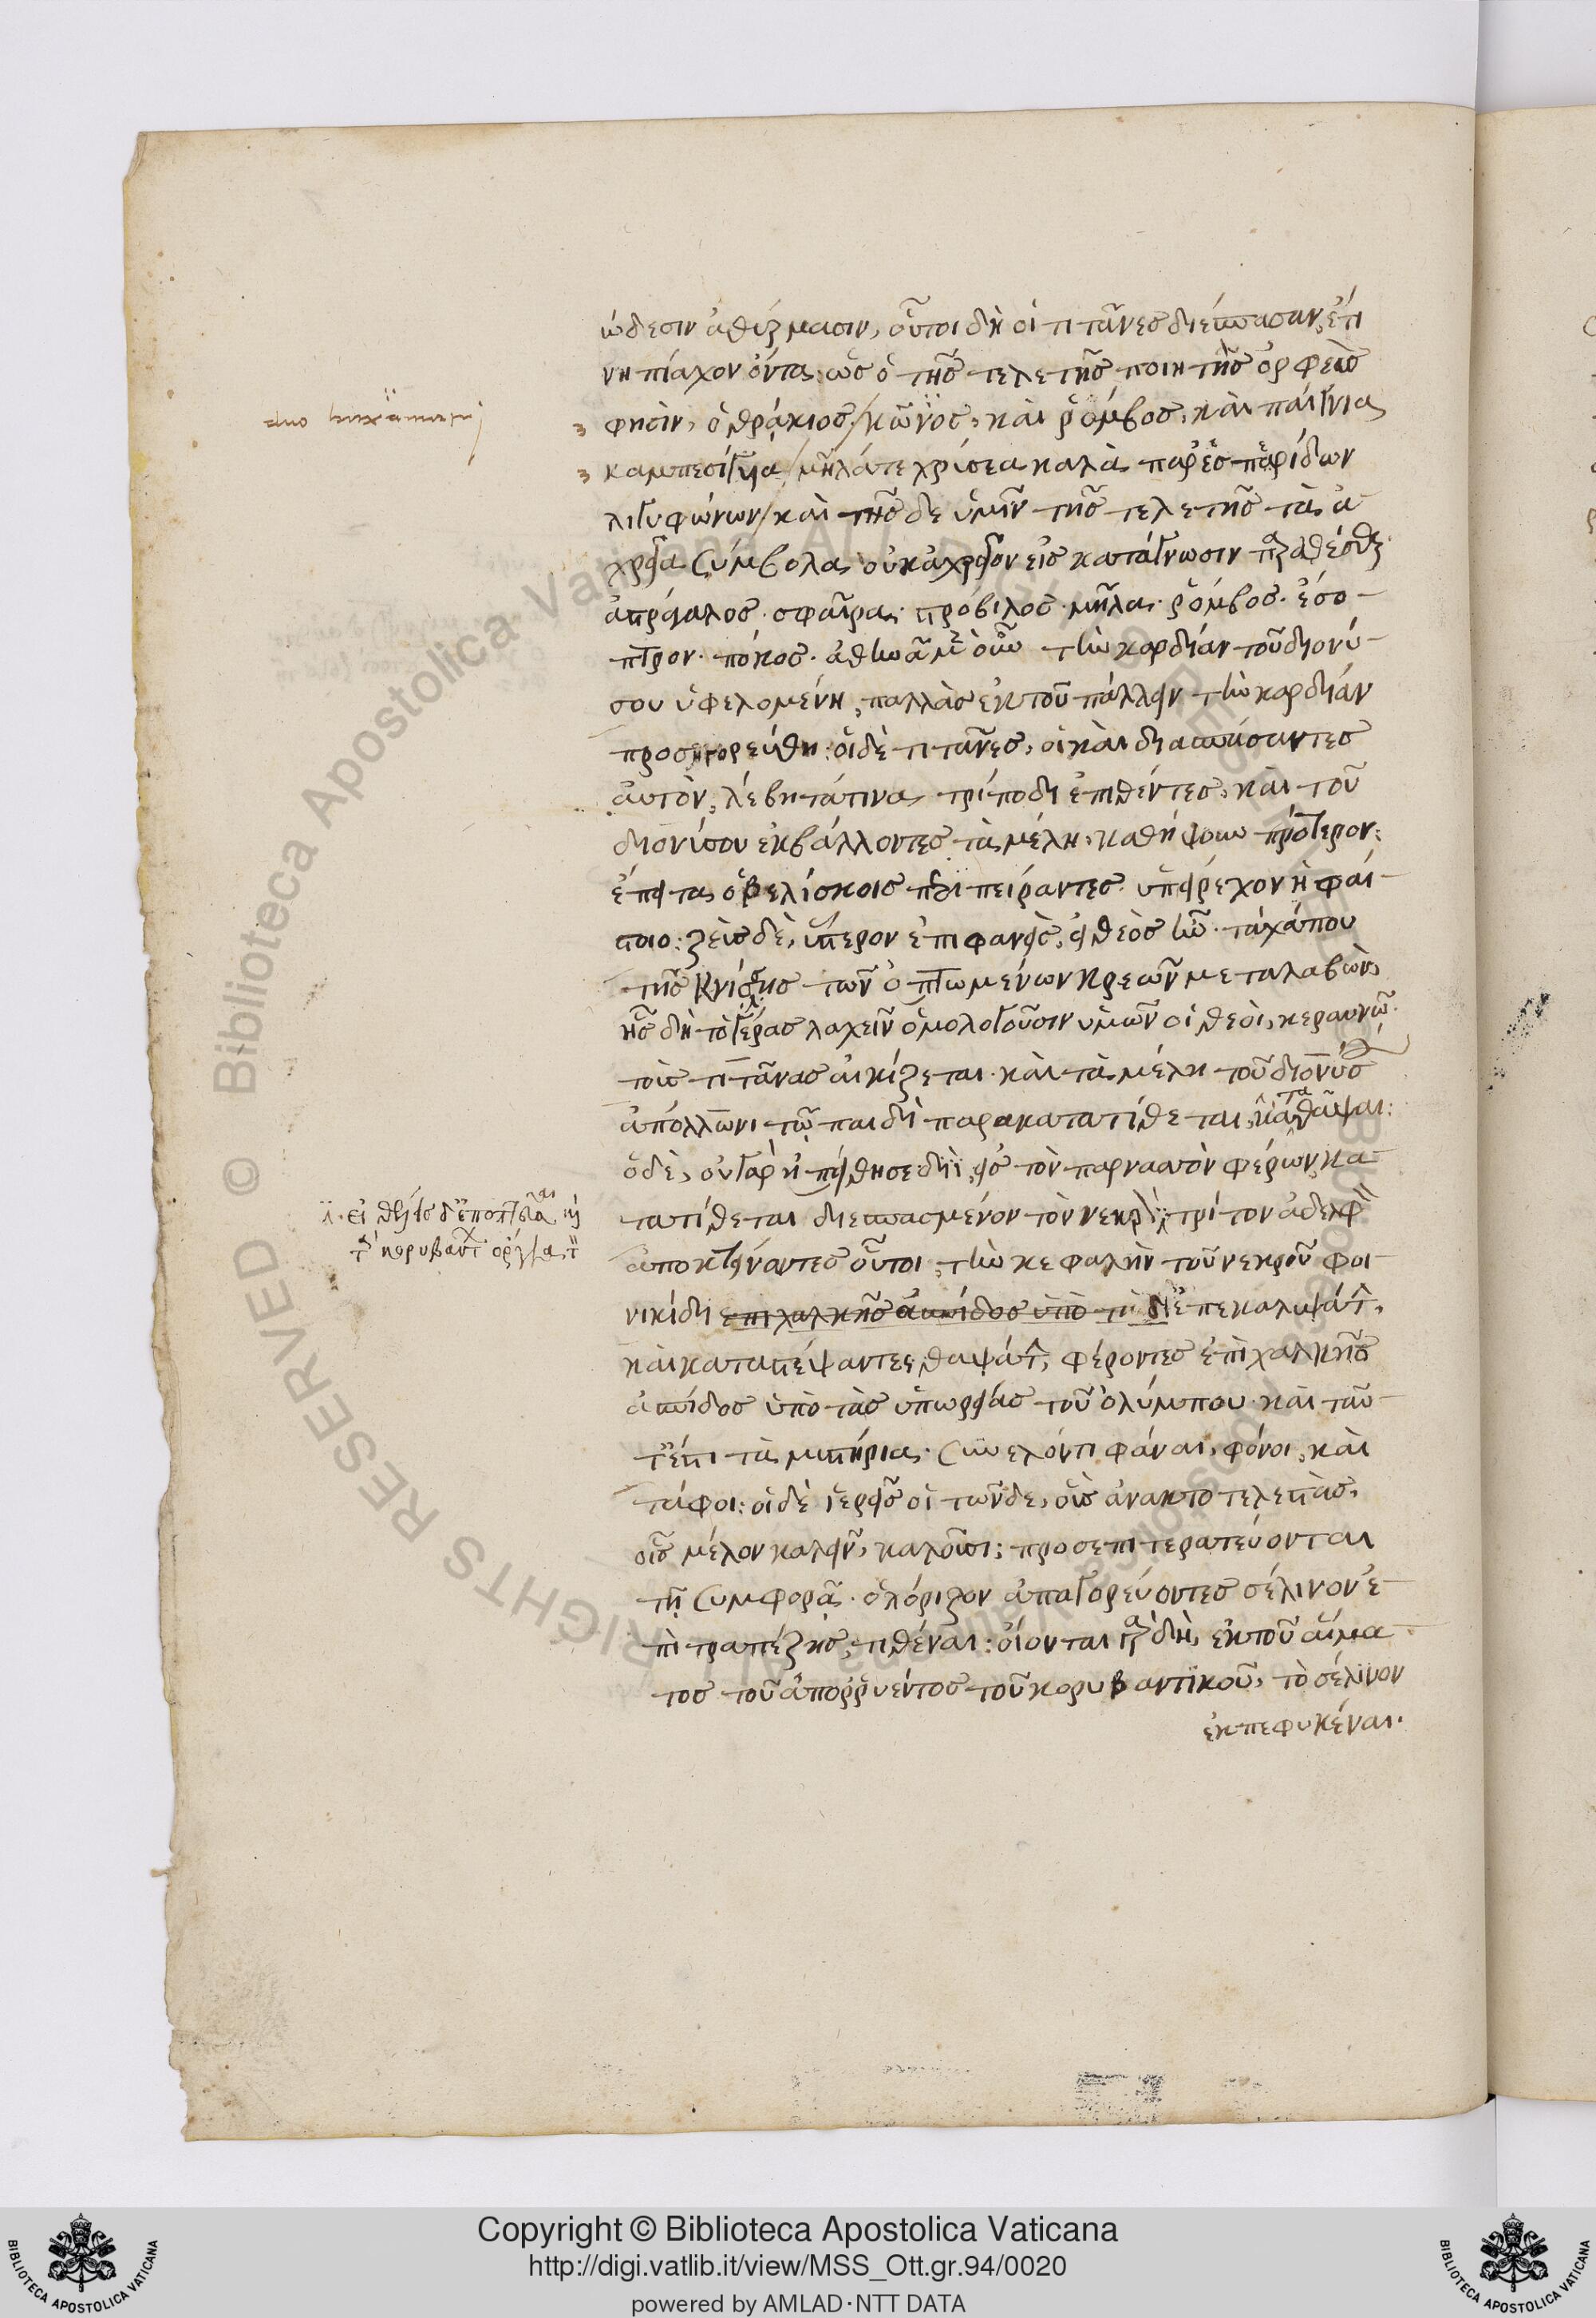 ώδεσιν ἀθύρμασιν, οὗτοι δὴ οἱ τιτᾶνες διέσπασαν, ἔτι
νηπίαχον ὄντα· ὡς ὁ τῆς τελετῆς ποιητὴς ὀρφεὺς
φησὶν, ὁ θράκιος / κῶνος, καὶ ῥόμβος, καὶ παίγνια
καμπεσίγυια / μῆλά τε χρύσεα καλὰ παρ' ἑσπερίδων
λιγυφώνων / καὶ τῆς δε ὑμῖν τῆς τελετῆς τὰ ἀ
χρεῖα σύμβολα οὐκ ἀχρεῖον εἰς κατάγνωσιν παραθέσθαι·
ἀστράγαλος· σφαῖρα· στρόβιλος· μῆλα· ῥόμβος· ἔσο-
πτρον· πόκος· ἀθηνᾶ μὲν οὖν τὴν καρδίαν τοῦ διονύ-
σου ὑφελομένη, παλλὰς ἐκ τοῦ πάλλειν τὴν καρδίαν
προσηγορεύθη: οἱ δὲ τιτᾶνες, οἱ καὶ διασπάσαντες
αὐτὸν, λέβητά τινα τρίποδι ἐπιθέντες, καὶ τοῦ
διονύσου ἐκβάλλοντες τὰ μέλη, καθήψουν πρότερον:
ἔπειτα ὀβελίσκοις περιπείραντες ὑπείρεχον ἡφαί-
στοιο: ζεὺς δὲ, ὕστερον ἐπιφανεὶς, εἰ θεὸς ἦν· τάχά που
τῆς κνίσσης τῶν ὀπτωμένων κρεῶν μεταλαβὼν,
ἧς δὴ τὸ γέρας λαχεῖν ὁμολογοῦσιν ὑμῶν οἱ θεοὶ, κεραυνῶ
τοὺς τιτᾶνας αἰκίζεται· καὶ τὰ μέλη τοῦ διονύσου
ἀπόλλωνι τῷ παιδὶ παρακατατίθεται, καταθάψαι:
ὁ δὲ, οὐ γὰρ ἠπείθησε διῒ, εἰς τὸν παρνασὸν φέρων, κα
τατίθεται διεσπασμένον τὸν νεκρὸν τρίτον ἀδελφὸν
ἀποκτείναντες οὗτοι, τὴν κεφαλὴν τοῦ νεκροῦ φοι-
νικίδι ἐπὶ χαλκῆς ἀσπίδος ὑπὸ τὴ ἐπεκαλυψάτην,
καὶ καταστέψαντες θαψάτην, φέροντες ἐπὶ χαλκῆς
ἀσπίδος ὑπὸ τὰς ὑπωρείας τοῦ ὀλύμπου· καὶ ταῦ
τ' ἔστι τὰ μυστήρια· συνελόντι φάναι, φόνοι, καὶ
τάφοι: οἱ δὲ ἱερεῖς οἱ τῶνδε, οὓς ἀνακτοτελεστὰς,
οἷς μέλον καλεῖν, καλοῦσι: προσεπιτερατεύονται
τῇ συμφορᾷ· ὁλόριζον ἀπαγορεύοντες σέλινον ἐ-
πὶ τραπέζης, τιθέναι: οἴονται γὰρ δὴ, ἐκ τοῦ αἵμα
τος τοῦ ἀπορρυέντος τοῦ κορυβαντικοῦ, τὸ σέλινον
ἐκπεφυκέναι.
λ. εἰ θέλεις δ' ἐποπτεῦσαι καὶ
κορυβάντων ὄργια,
Copyright © Biblioteca Apostolica Vaticana
http://digi.vatlib.it/view/MSS_Ott.gr.94/0020
powered by AMLAD·NTT DATA
BIBLIOTECA APOSTOLICA VATICANA
BIBLIOTECA APOSTOLICA VATICANA